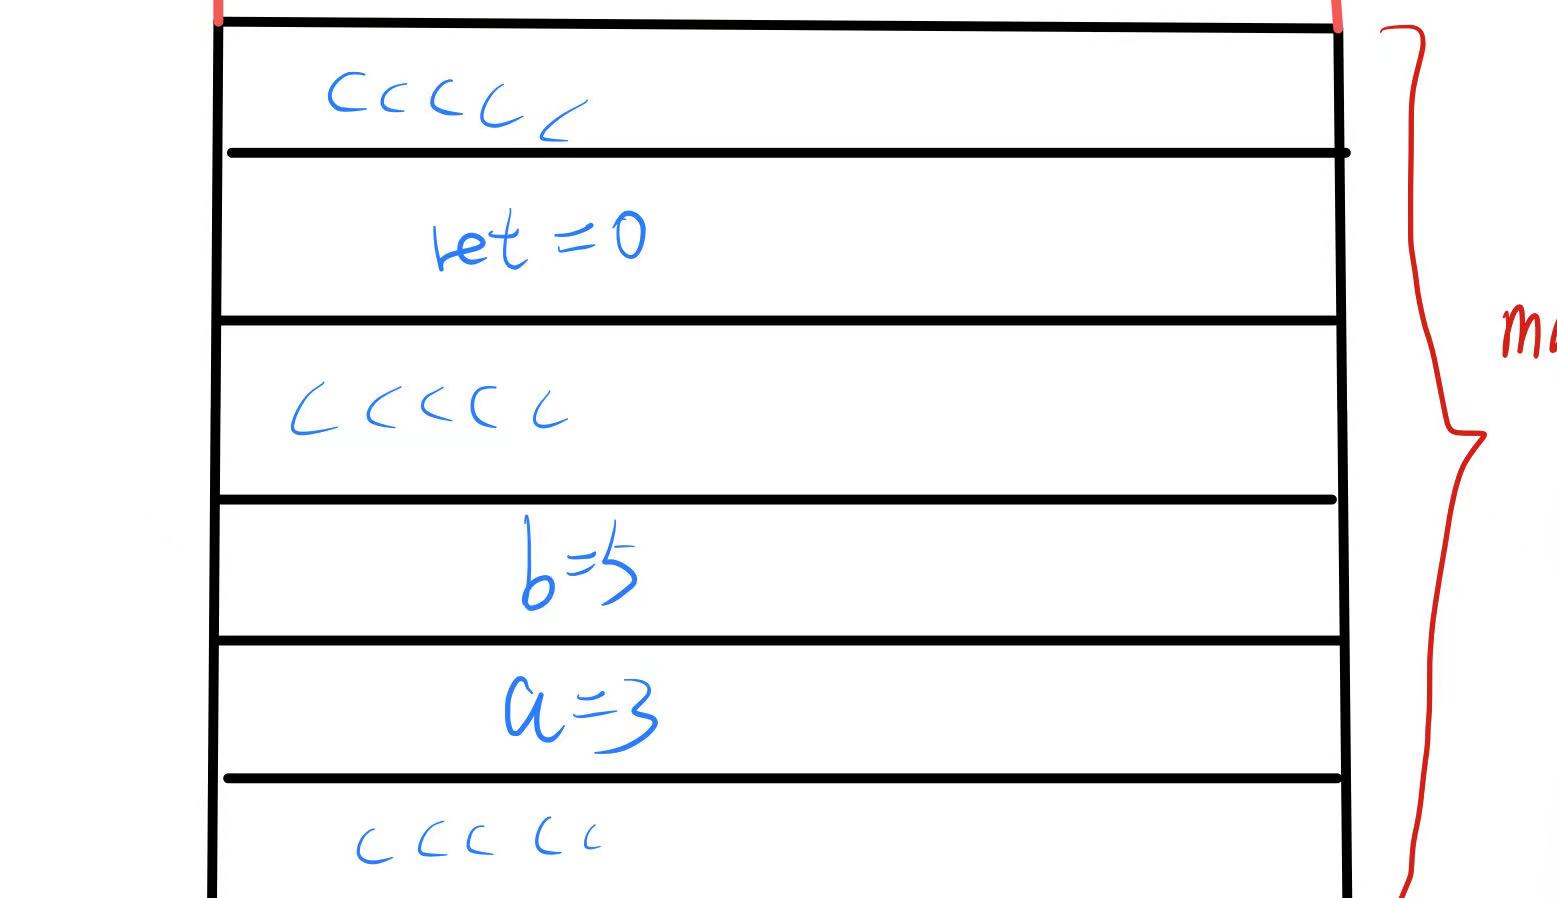 ccccc
ret=0
ccccc
b=5
a=3
ccccc